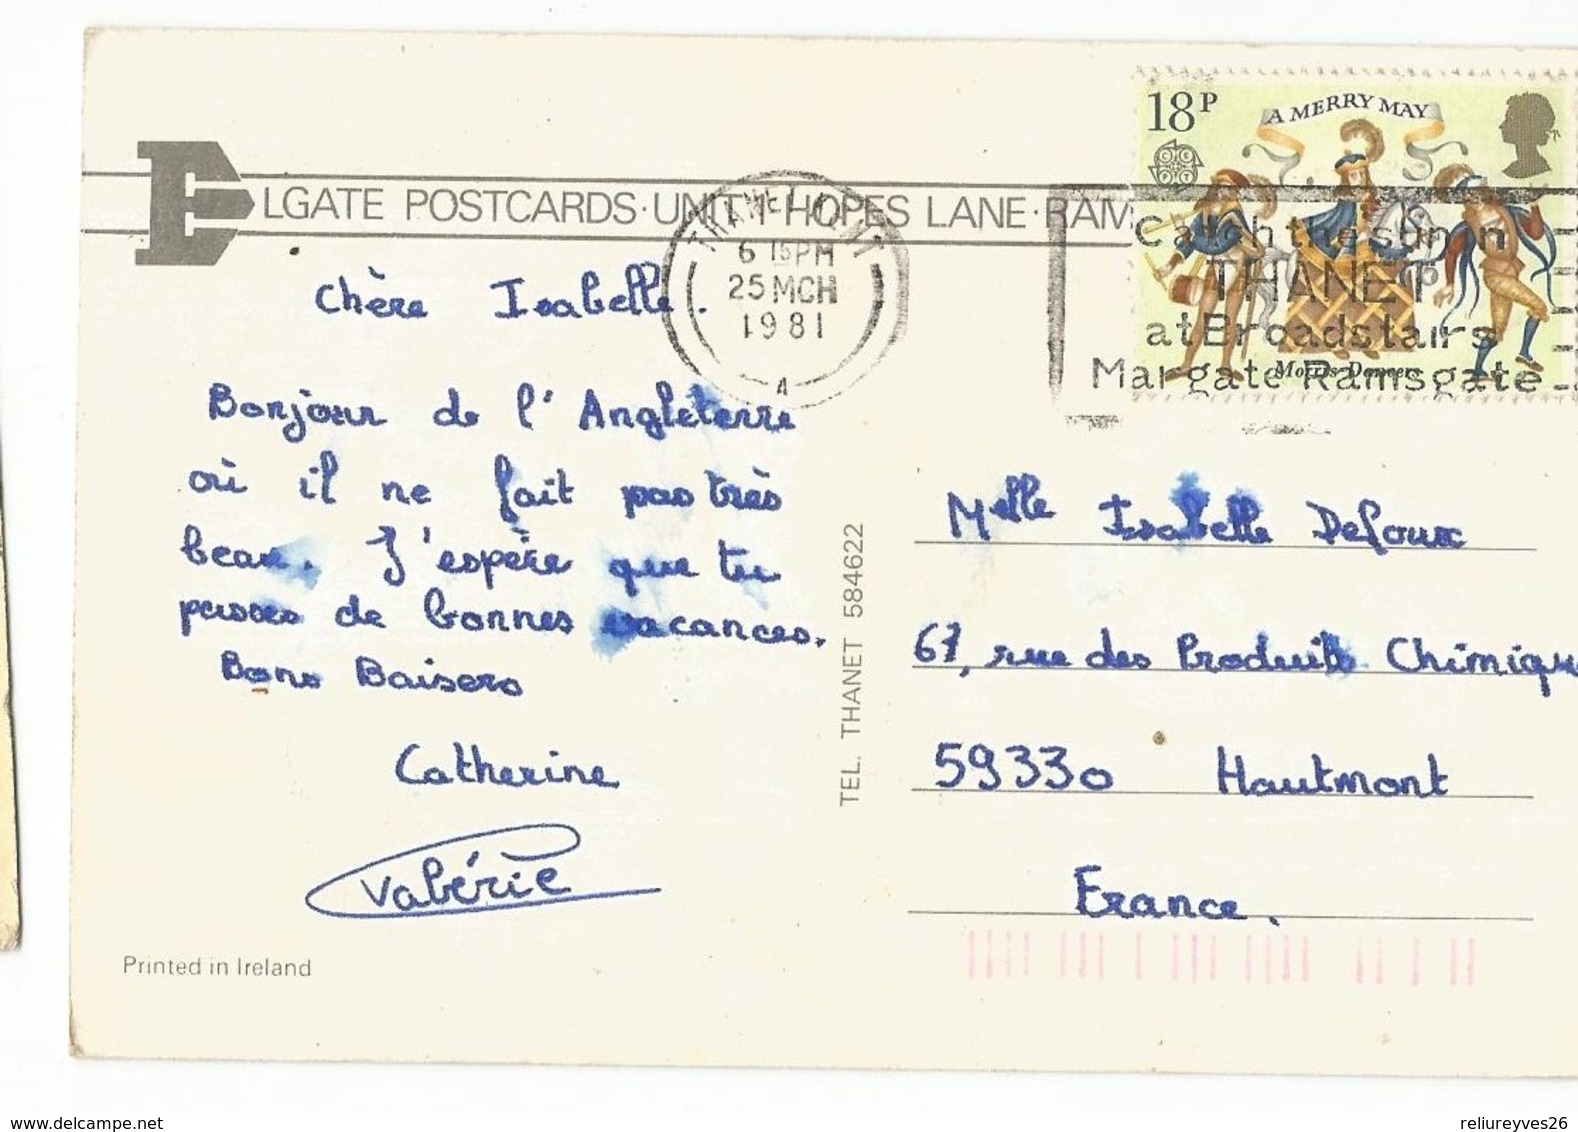 18P
A MERRY MAY
ELGATE POSTCARDS·UNIT 1·HOPES LANE·RAM
THANET KENT
6 15PM
25 MCH
1981
A
Catch the sun in
THANET
at Broadstairs
Margate Ramsgate
Morris Dancers
Chère Isabelle.
Bonjour de l'Angleterre
où il ne fait pas très
beau. J'espère que tu
passes de bonnes vacances.
Bons Baisers
Catherine
Valérie
Printed in Ireland
TEL. THANET 584622
Melle Isabelle Defoux
67, rue des Produits Chimiqu
59330 Hautmont
France.
www.delcampe.net
reliureyves26